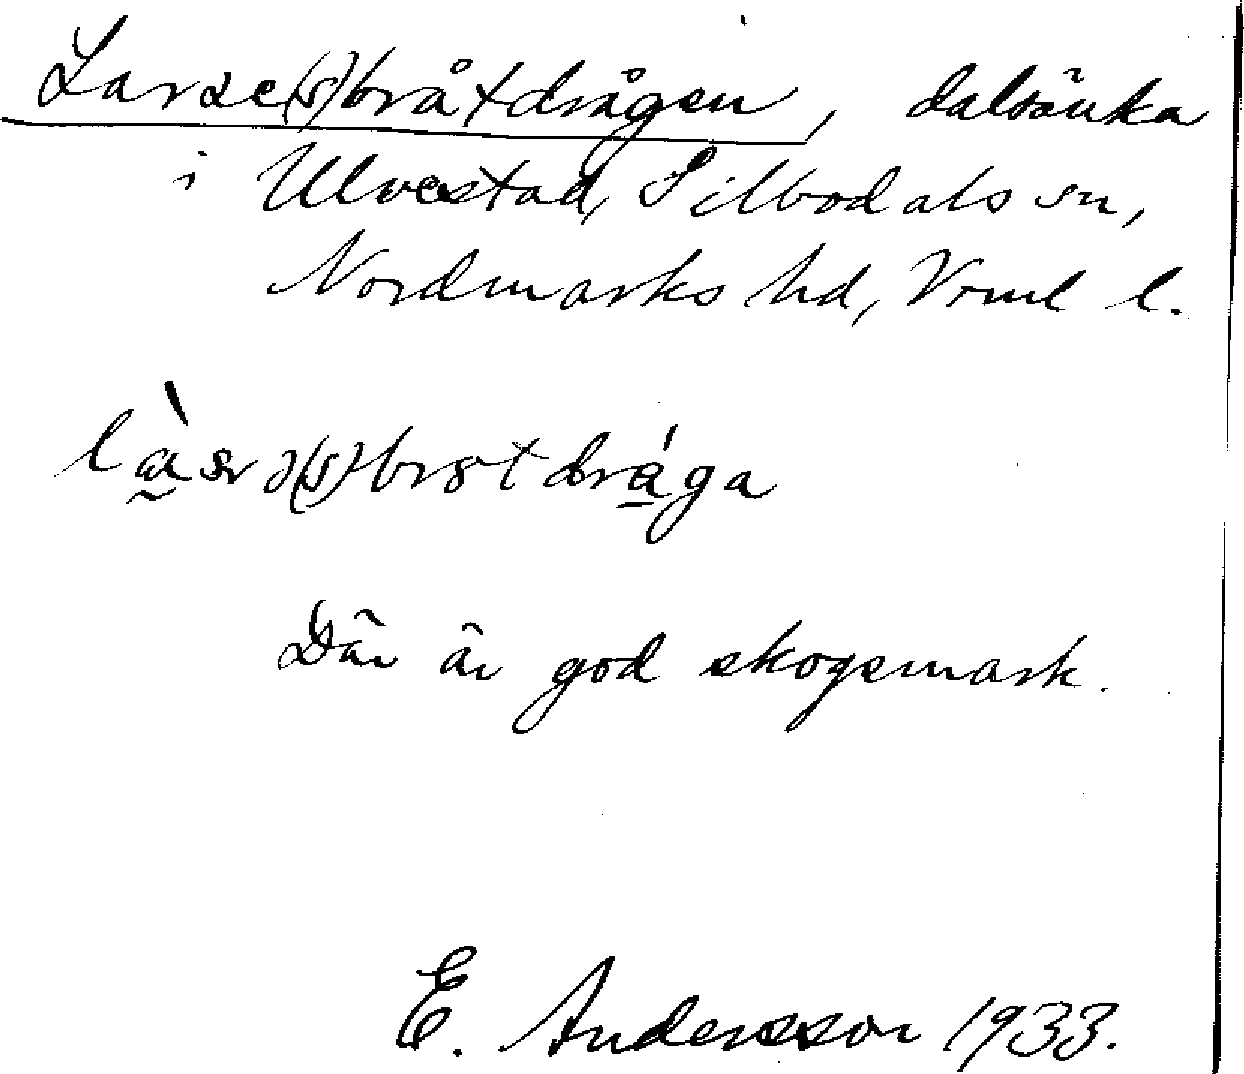 Larse(s)bråtdrågen, dalsänka
i Ulvestad, Silbodals sn,
Nordmarks hd, Vrml l.
Där är god skogsmark.
E. Andersson 1933.